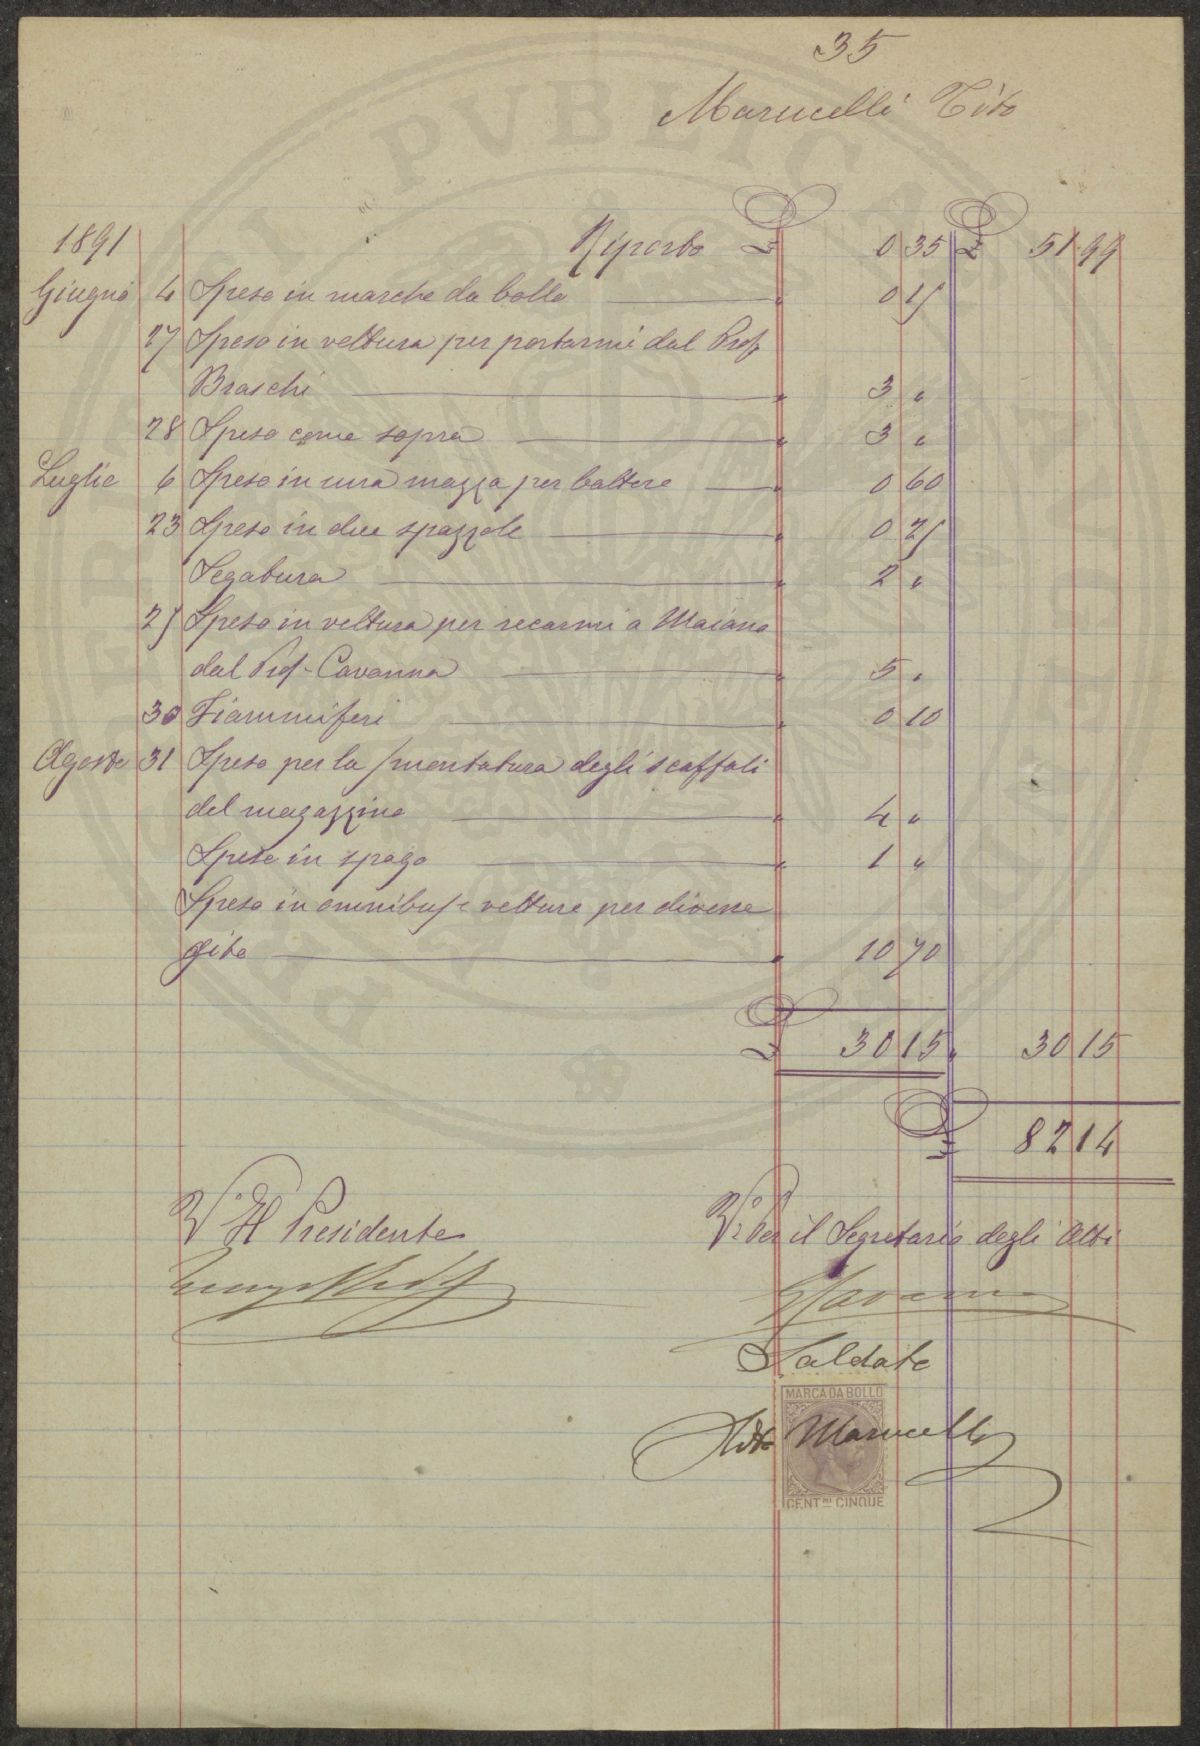 35
Marucelli Tito
1891 Riporto £ 0 35 £ 51 99
Giugno 4 Spese in marche da bollo " 0 15
27 Spese in vettura per portarmi dal Prof.
Braschi " 3 "
28 Spese come sopra " 3 "
Luglio 6 Spese in una mazza per battere " 0 60
23 Spese in due spazzole " 0 25
Segatura " 2 "
25 Spese in vettura per recarmi a Maiano
dal Prof. Cavanna " 5 "
30 Fiammiferi " 0 10
Agosto 31 Spese per la smontatura degli scaffali
del magazzino " 4 "
Spese in spago " 1 "
Spese in omnibus e vetture per diverse
gite " 10 70
£ 30 15 " 30 15
£ 82 14
V° Il Presidente
V° Per il Segretario degli Atti
G Cavanna
Saldato
MARCA DA BOLLO
Tito Marucelli
CENT.MI CINQUE